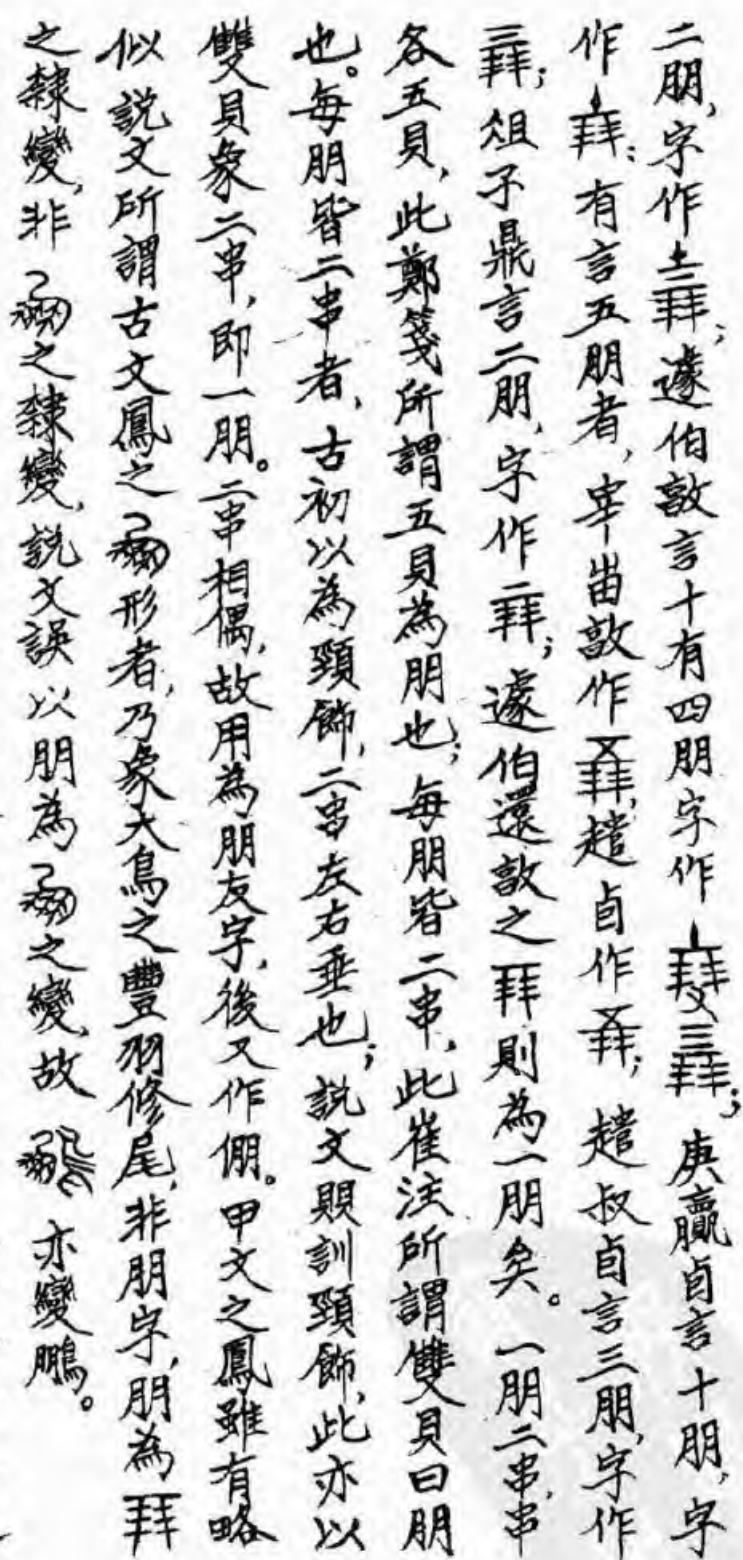 二朋，字作；遽伯敦言十有四朋字作；庚贏卣言十朋，字
作；有言五朋者，宰甾敦作，趞卣作；趞叔卣言三朋，字作
；俎子鼎言二朋，字作；遽伯還敦之則為一朋矣。一朋二串，串
各五貝，此鄭箋所謂五貝為朋也；每朋皆二串，此崔注所謂雙貝曰朋
也。每朋皆二串者，古初以為頸飾，二串左右垂也；說文賏訓頸飾，此亦以
雙貝象二串，即一朋。二串相偶，故用為朋友字，後又作倗。甲文之鳳雖有略
似說文所謂古文鳳之形者，乃象大鳥之豐羽修尾，非朋字，朋為
之隸變，非之隸變，說文誤以朋為之變，故亦變鵬。